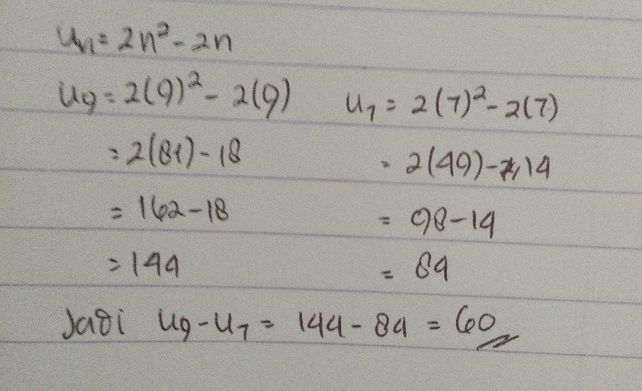 Un = 2n² - 2n
U9 = 2(9)² - 2(9)
= 2(81) - 18
= 162 - 18
= 144
U7 = 2(7)² - 2(7)
= 2(49) - 14
= 98 - 14
= 84
Jadi U9 - U7 = 144 - 84 = 60